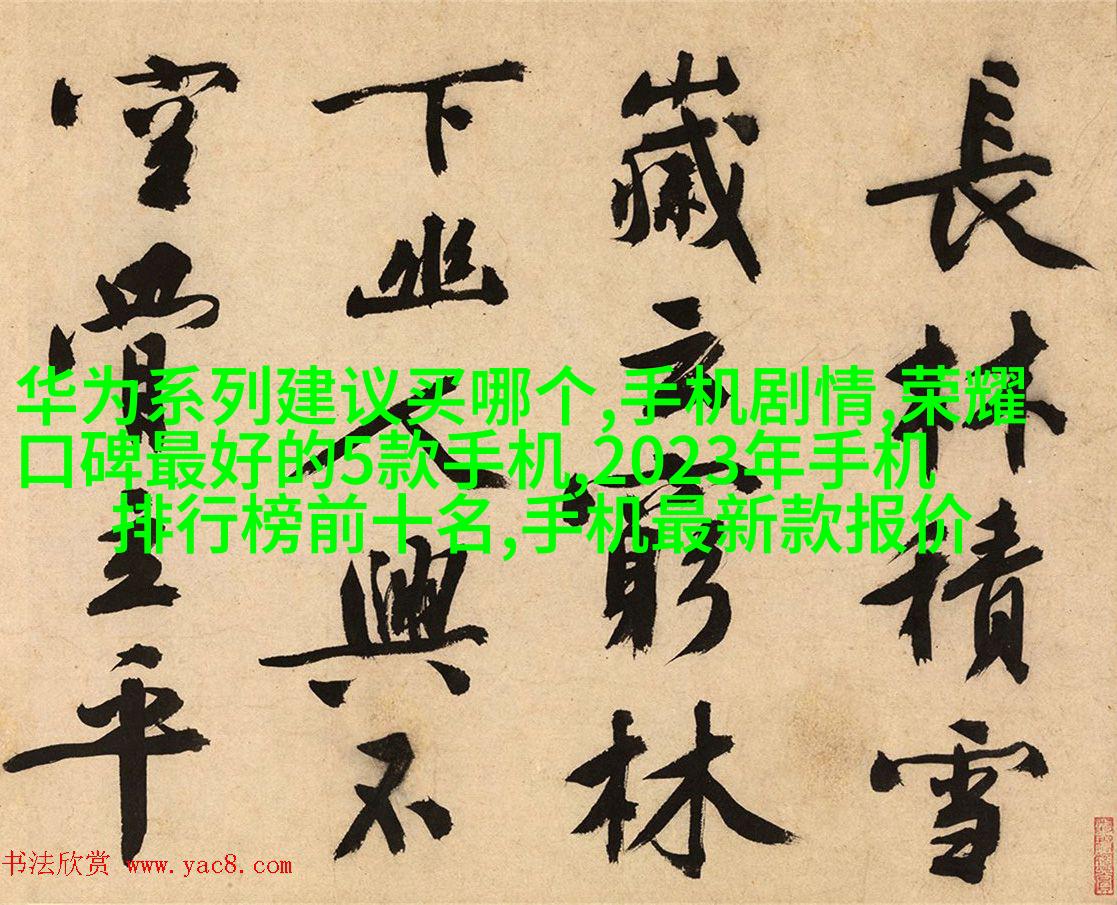 長林積雪
歲方窮林
下幽人興不
空平
华为系列建议买哪个,手机剧情,荣耀
口碑最好的5款手机,2023年手机
排行榜前十名,手机最新款报价
书法欣赏 www.yac8.com